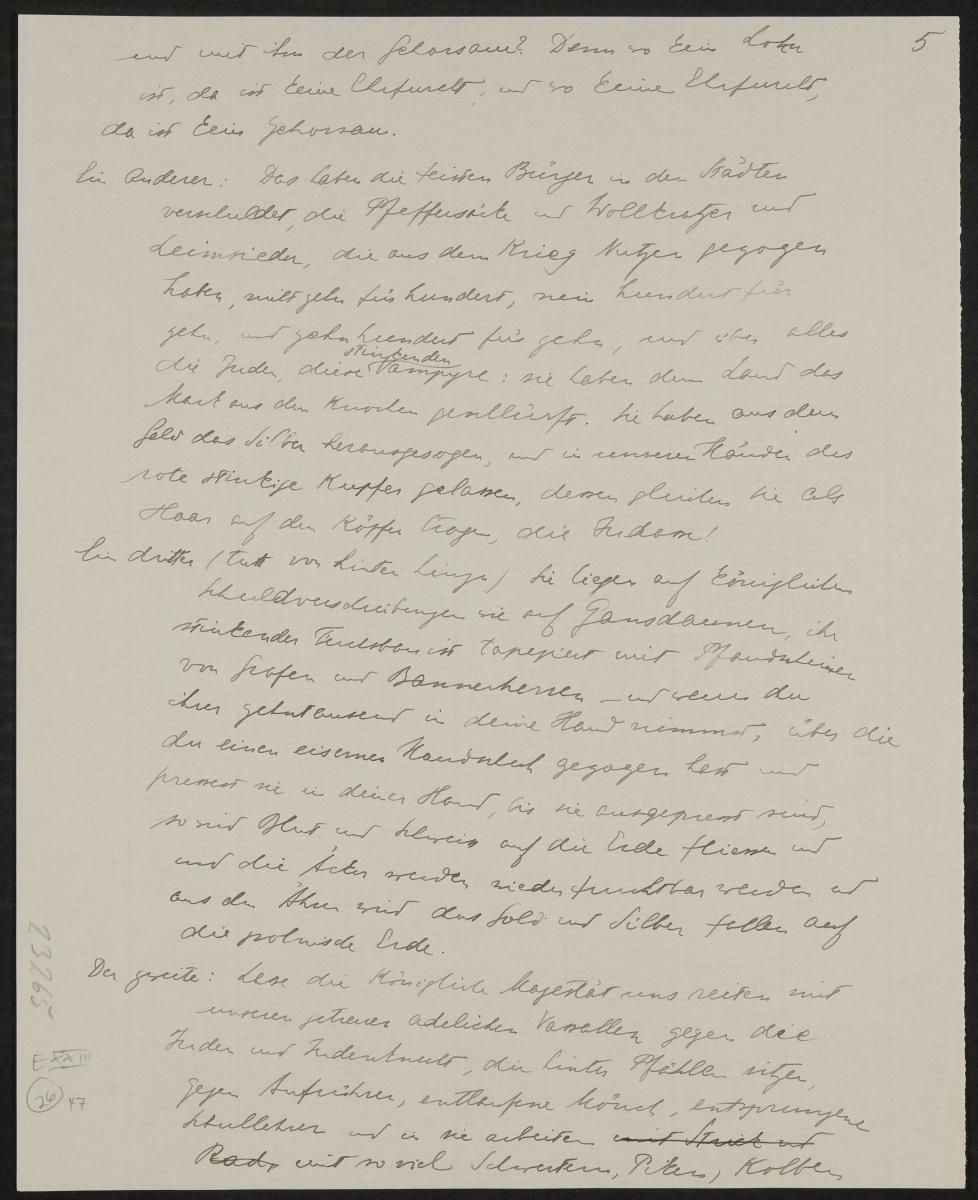 5
und mit ihm der Gehorsam? Denn wo kein Lohn
ist, da ist keine Ehrfurcht, und wo keine Ehrfurcht,
da ist kein Gehorsam.
Ein anderer: Das haben die feisten Bürger in den Städten
verschuldet, die Pfeffersäcke und Wollkratzer und
Leimsieder, die aus dem Krieg Nutzen gezogen
haben, nicht zehn für hundert, nein hundert für
zehn, und zehnhundert für zehn, und über alles
die Juden, diese stinkenden Vampyre: sie haben dem Land das
Mark aus den Knochen geschlürft. Sie haben aus dem
Geld das Silber herausgesogen, und in unseren Händen das
rote stinkige Kupfer gelassen, dessen gleichen sie als
Haar auf den Köpfen tragen, die Judasse!
Ein dritter (tritt von hinten hinzu) Sie liegen auf königlichen
Schuldverschreibungen wie auf Gansdaunen, ihr
stinkender Fuchsbau ist tapeziert mit Pfandscheinen
von Grafen und Bannerherren – und wenn du
ihrer zehntausend in deine Hand nimmst, über die
du einen eisernen Handschuh gezogen hast und
pressest sie in deiner Hand, bis sie ausgepresst sind,
so wird Blut und Schweiss auf die Erde fliessen und
und die Äcker werden wieder fruchtbar werden und
aus den Ähren wird das Gold und Silber fallen auf
die polnische Erde.
Der zweite: Lasse die Königliche Majestät uns reiten mit
unseren getreuen adelichen Vasallen gegen die
Juden und Judenknecht, die hinter Pfählen sitzen,
gegen Aufrührer, entlaufene Mönch, entsprungene
Schullehrer und in sie arbeiten mit Strick und
Rad, mit so viel Schwertern, Piken, Kolben
23265
E XXIII
26
47